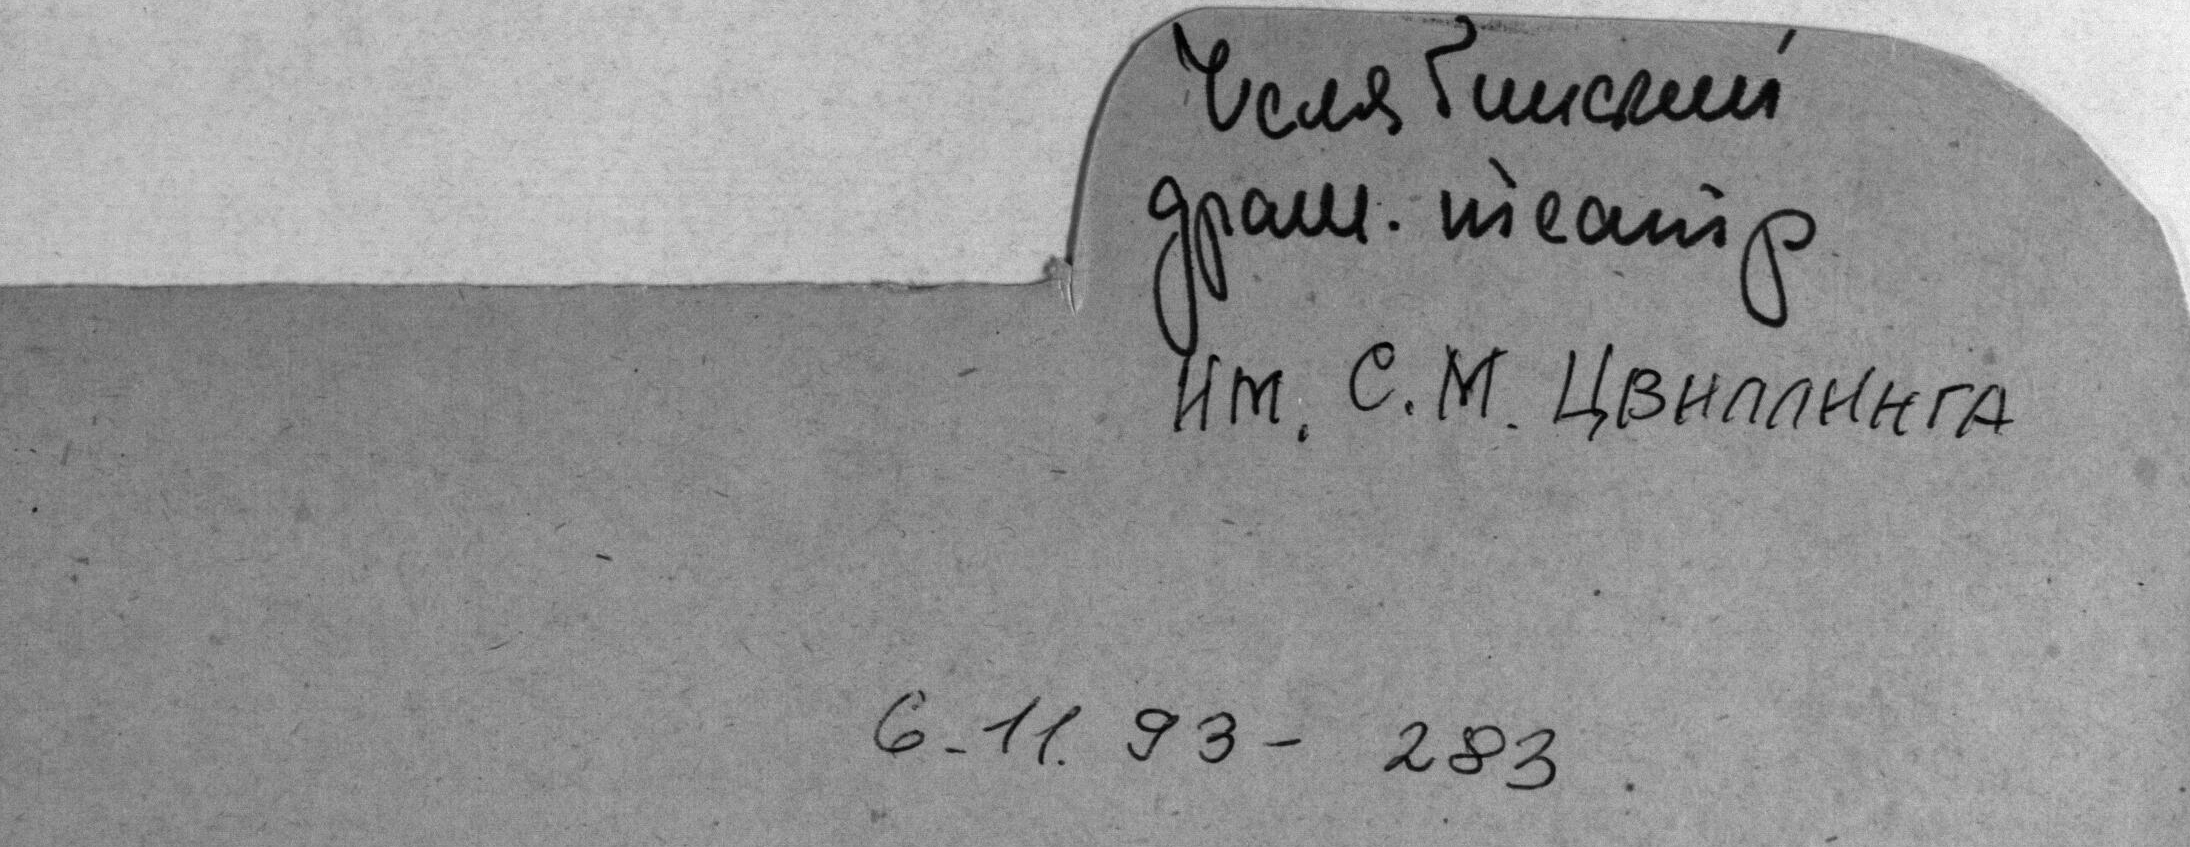 Челябинский
драм. театр
им. С. М. ЦВИЛЛИНГА
6-11. 93 - 283